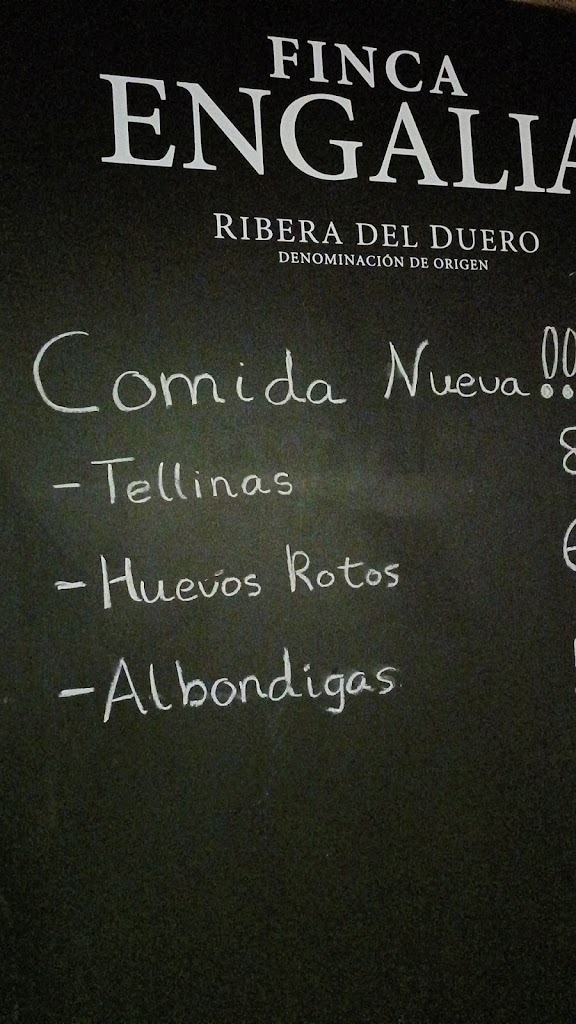 FINCA
ENGALIA
RIBERA DEL DUERO
DENOMINACIÓN DE ORIGEN
Comida Nueva!!
- Tellinas 8
- Huevos Rotos
- Albondigas